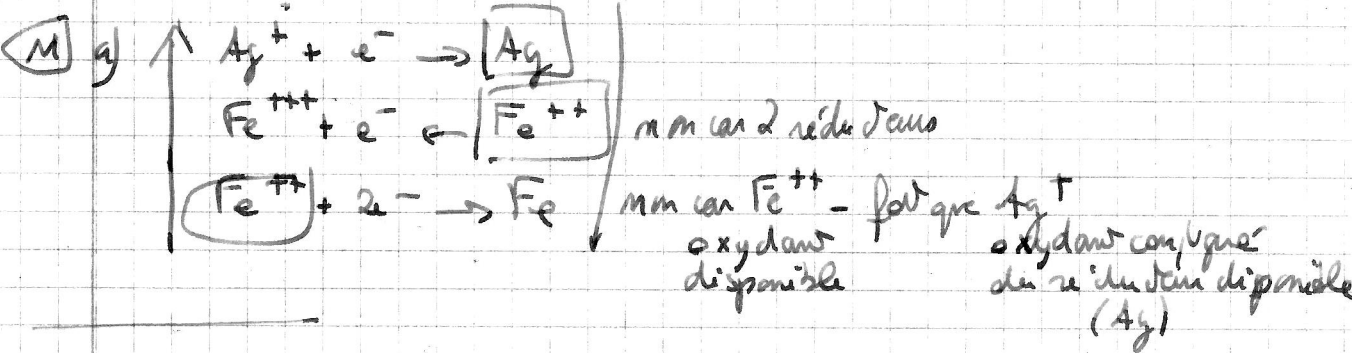 M a) Ag⁺ + e⁻ → Ag
Fe⁺⁺⁺ + e⁻ ← Fe⁺⁺ non car 2 réducteurs
Fe⁺⁺ + 2e⁻ → Fe non car Fe⁺⁺ - fort que Ag⁺
oxydant oxydant conjugué
disponible du réducteur disponible
(Ag)